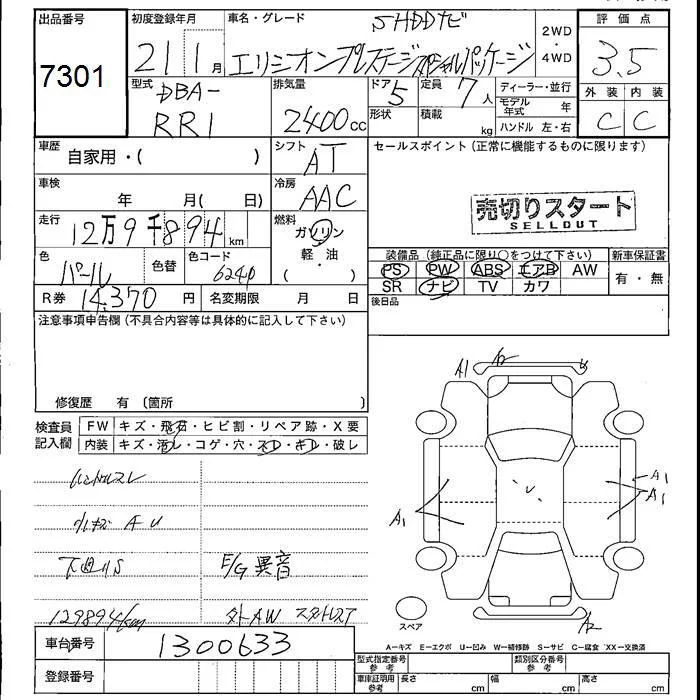 出品番号
7301
初度登録年月
21 1月
車名・グレード
SHDDナビ
エリシオンプレステージ スペシャルパッケージ
2WD
・
4WD
評価点
3.5
外装 内装
C C
型式
DBA-
RR1
排気量
2400cc
ドア 5
形状
定員 7人
積載 kg
ディーラー・並行
モデル年式 年
ハンドル 左・右
車歴
自家用・( )
シフト
AT
車検
年 月( 日)
冷房
AAC
走行
12万9千894km
燃料
ガソリン
軽・油
( )
色
パール
色替
色コード
6240
R券 14,370円
名変期限 月 日
セールスポイント(正常に機能するものに限ります)
売切りスタート
SELLOUT
装備品(純正品に限り○をつけて下さい)
PS PW ABS エアB AW
SR ナビ TV カワ
新車保証書
有・無
後日品
注意事項申告欄(不具合内容等は具体的に記入して下さい)
修復歴 有(箇所 )
検査員
記入欄
FW キズ・飛石・ヒビ割・リペア跡・X要
内装 キズ・汚レ・コゲ・穴・スレ・キレ・破レ
ハンドルスレ
小キズ A U
下廻りS
E/G異音
129894km
外AW スタッドレスT
A1 A2
A1
A1
A1
U
A2
スペア
A-キズ E-エクボ U-凹み W-補修跡 S-サビ C-腐食 XX-交換済
車台番号
1300633
登録番号
型式指定番号
参考
類別区分番号
参考
車庫証明用
参考
長さ cm
幅 cm
高さ cm